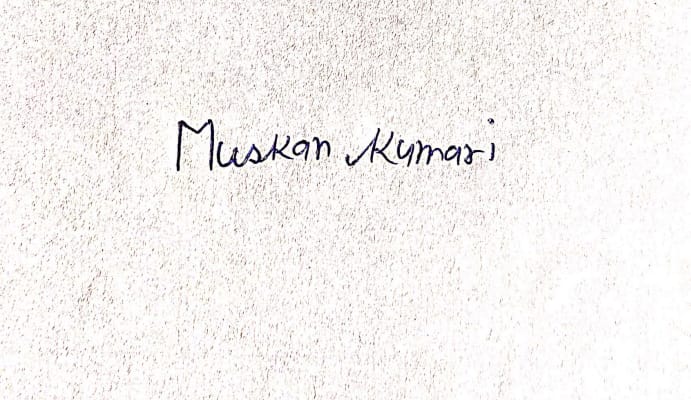 Muskan Kumari